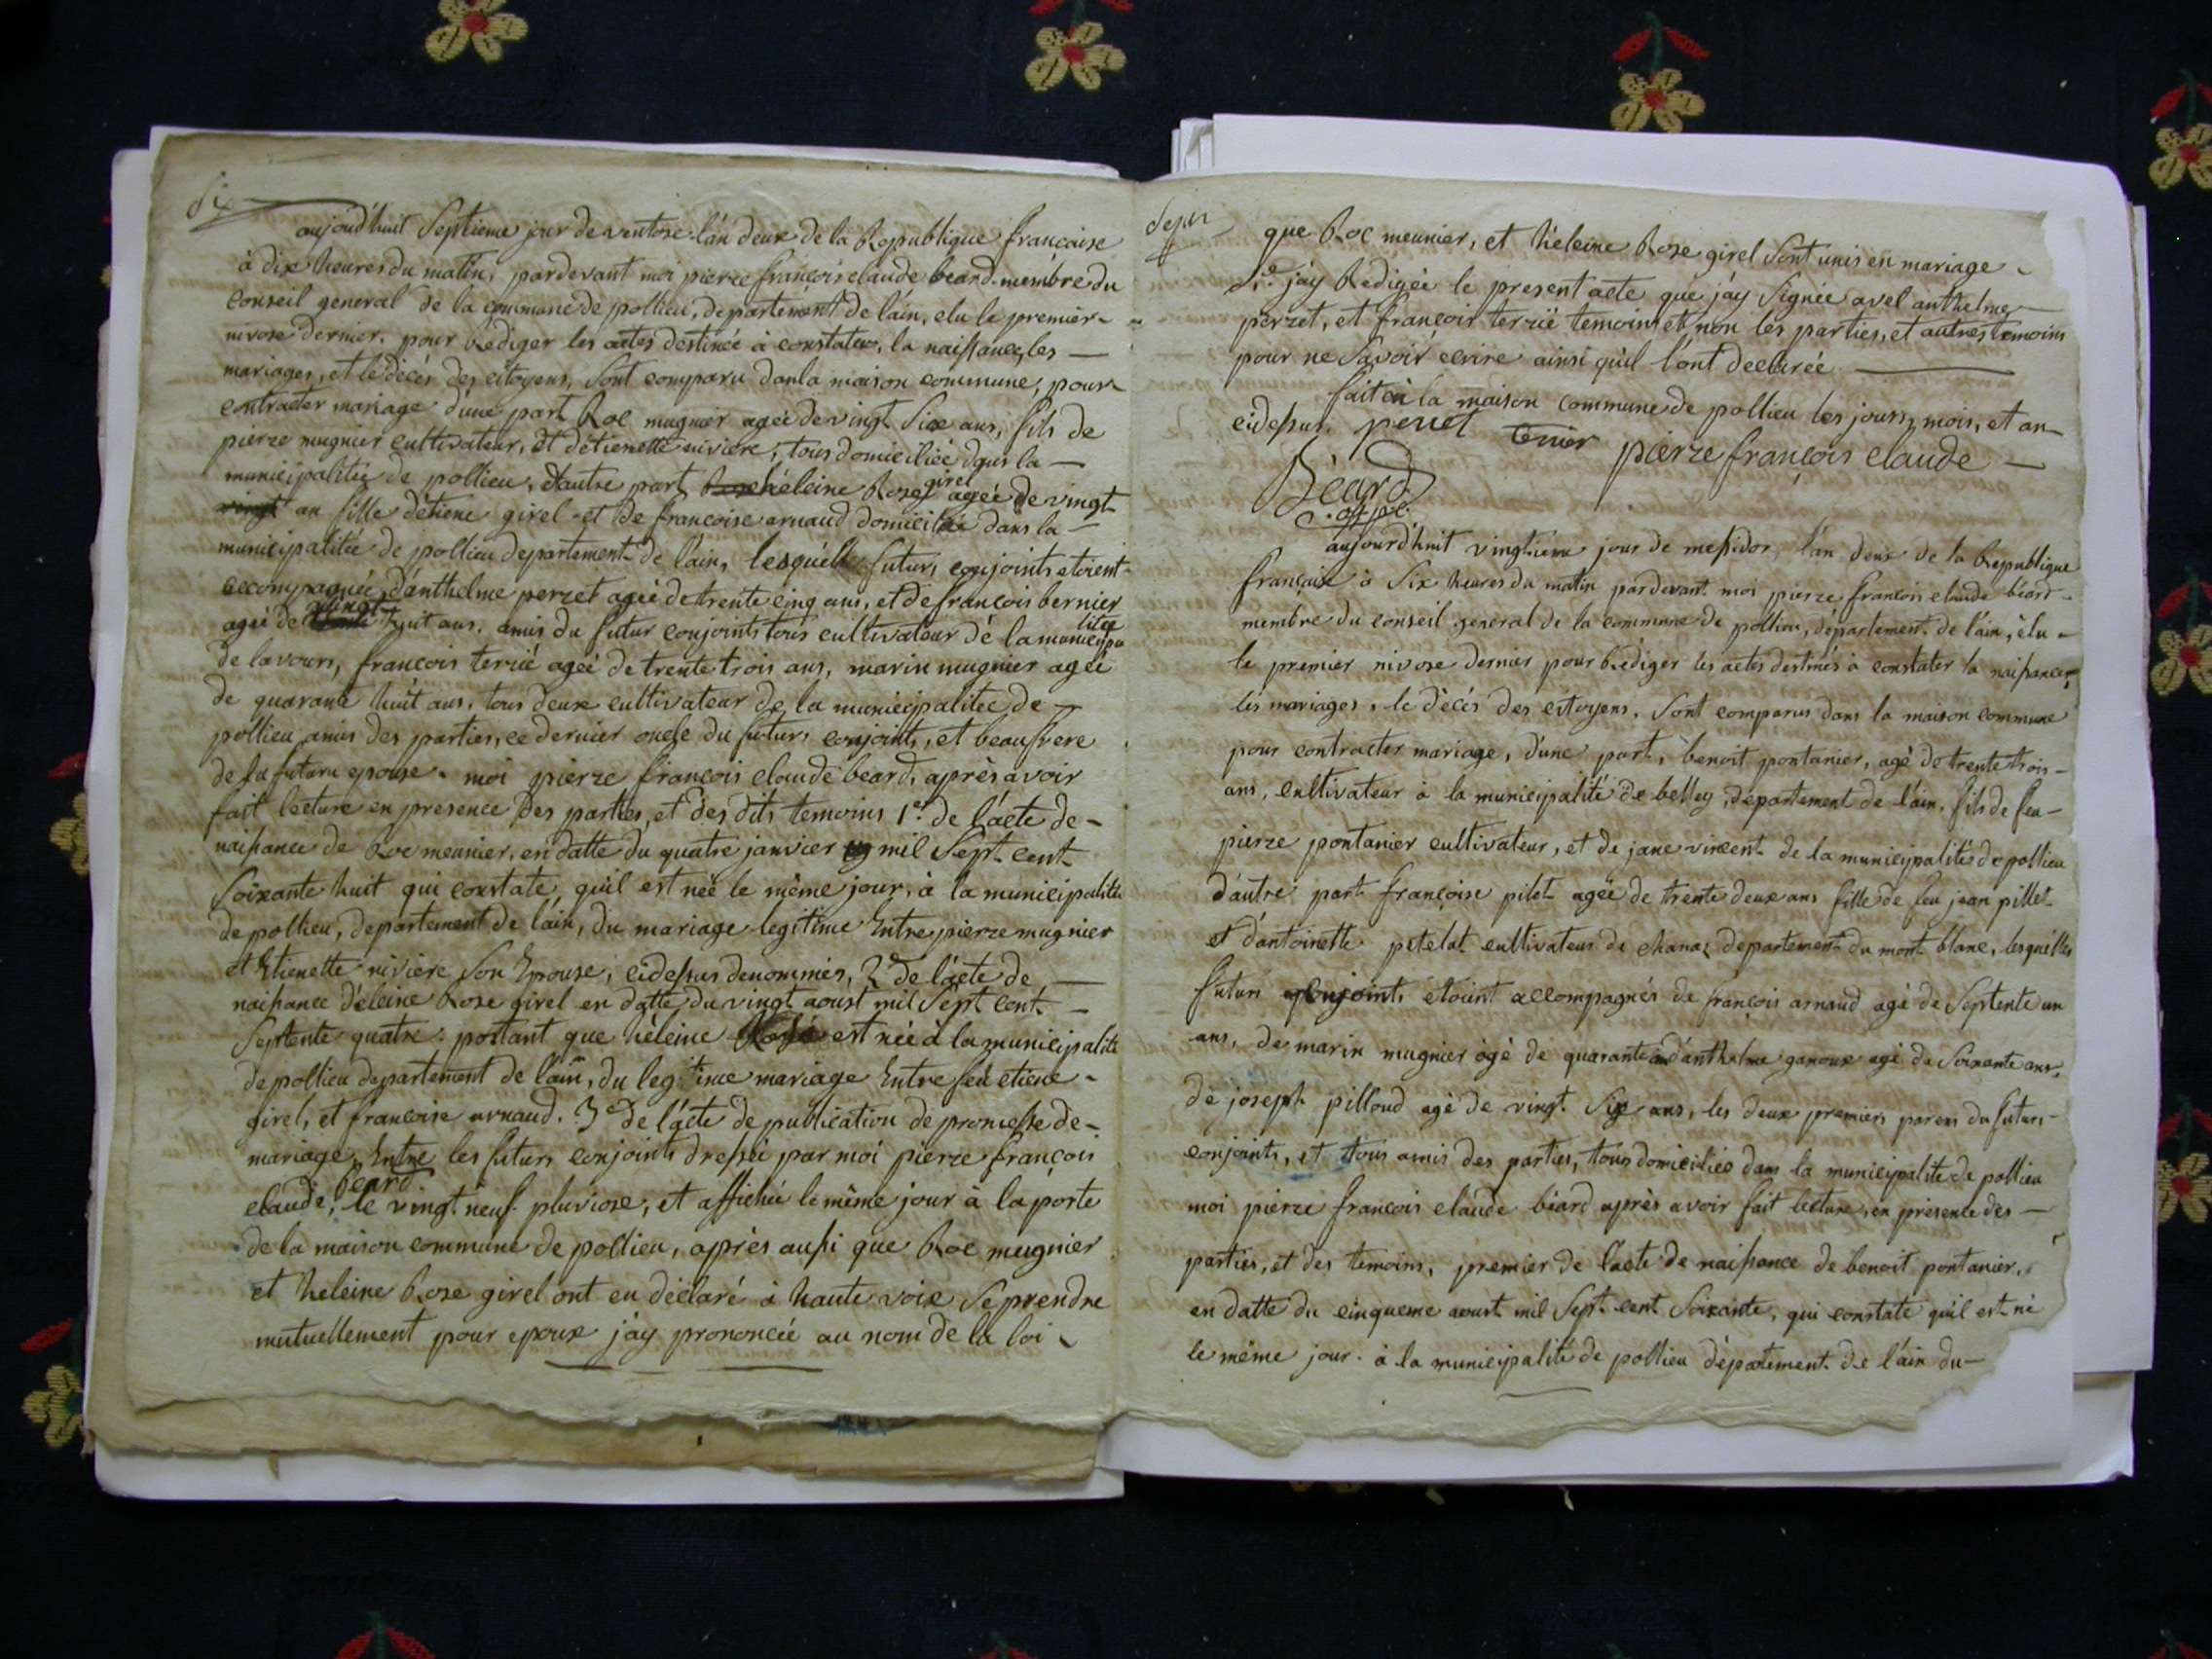 Six
aujoud'huit Septieme jour de ventose l'an deux de la Republique francaise
à dix heures du matin, pardevant moi pierre françois claude beard membre du
Conseil general de la commune de pollieu, departement de l'ain, elu le premier
nivose dernier, pour Rediger les actes destinéé à constater, la naissance, les
mariages, et le décés des citoyens, Sont comparu dans la maison commune, pour
contracter mariage d'une part Roc mugnier ageé de vingt Six ans, fils de
pierre mugnier cultivateur, et d'etienette riviere, tous domiciliéé dans la
municipalitée de pollieu, d'autre part heleine Rose girel ageé de vingt
an fille d'etiene girel et de francoise arnaud domiciliée dans la
municipalitée de pollieu departement de l'ain, lesquélle futurs conjoints etoient
accompagnéé d'anthelme perret ageé de trente cinq ans, et de francois bernier
ageé de vingt huit ans. amis du futur conjoints tous cultivateur dé la municipalitée
de lavours, francois teriié ageé de trente trois ans, marin mugnier ageé
de quarante huit ans, tous deux cultivateur de la municipalitée de
pollieu amis des parties, ce dernier oncle du futurs conjoints, et beaufrere
de la future epouse. moi pierre françois claude beard, après avoir
fait lecture en presence des parties, et des dits temoins 1er. de l'acte de
naissance de Roc meunier, en datte du quatre janvier mil Sept cent
Soixante huit qui constate, qu'il est néé le même jour, à la municipalité
de pollieu, departement de l'ain, du mariage legitime Entre pierre mugnier
et Etienette riviere Son Epouse, cidessus denommés, 2e de l'acte de
naissance d'éleine Rose girel en datte du vingt aoust mil Sept cent
Septente quatre portant que héleine Rose est néé à la municipalité
de pollieu departement de l'ain, du legitime mariage Entre feu etiene
girel, et francoise arnaud. 3e de l'acte de publication de promesse de
mariage, Entre les futurs conjoints dressée par moi pierre françois
claude beard, le vingt neuf pluviose, et affichée le même jour à la porte
de la maison commune de pollieu, après aussi que Roc mugnier
et heleine Rose girel ont eu déclaré à haute voix Se prendre
mutuellement pour epoux j'ay prononcéé au nom de la loi
Sept
que Roc meunier, et héleine Rose girel Sont unis en mariage
j'ay Redigéé le present acte que j'ay Signéé avel anthelme
perret, et françois teriié temoins et non les parties, et autres temoins
pour ne Savoir ecrire ainsi qu'il l'ont declaréé
fait à la maison commune de pollieu les jours, mois, et an
cidessus. perret terrier pierre françois claude
Béard
off. pub.
aujourd'huit vingtieme jour de messidor, l'an deux de la Republique
française à Six heures du matin pardevant moi pierre francois claude béard
membre du conseil general de la commune de pollieu, département de l'ain, élu
le premier nivose dernier pour Rediger les actes destinés à constater la naissance,
les mariages, le décés des citoyens, Sont comparus dans la maison commune
pour contracter mariage, d'une part, benoit pontanier, agé de trente trois
ans, cultivateur à la municipalité de belley, département de l'ain, fils de feu
pierre pontanier cultivateur, et de jane vincent de la municipalité de pollieu
d'autre part françoise pilot ageé de trente deux ans fille de feu jean pillet
et d'antoinette petelat cultivateur de chanaz departement du mont blanc, lesquélles
futurs conjoints étoient accompagnés de françois arnaud agé de Septente un
ans, de marin mugnier agé de quarante d'anthelme ganoux agé de Soixante ans,
de joseph pilloud agé de vingt Six ans, les deux premiers parens du futurs
conjoints, et tous amis des parties, tous domiciliés dans la municipalité de pollieu
moi pierre francois claude béard après avoir fait lecture, en présence des
parties, et des temoins, premier de l'acte de naissance de benoit pontanier,
en datte du cinqueme aoust mil Sept cent Soixante, qui constate qu'il est né
le même jour à la municipalité de pollieu département de l'ain du